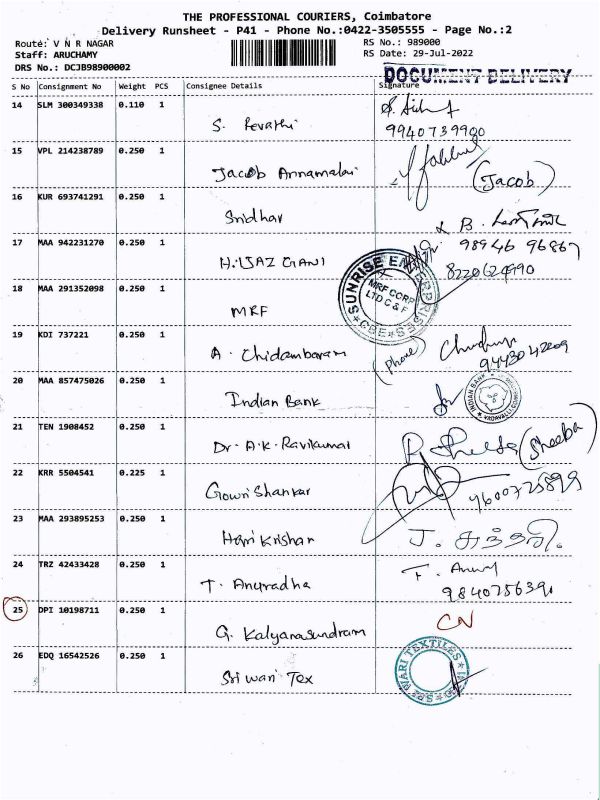 THE PROFESSIONAL COURIERS, Coimbatore
Delivery Runsheet - P41 - Phone No.:0422-3505555 - Page No.:2
Route: V N R NAGAR
RS No.: 989000
Staff: ARUCHAMY
RS Date: 29-Jul-2022
DRS No.: DCJB98900002
DOCUMENT DELIVERY
S No Consignment No Weight PCS Consignee Details Signature
14 SLM 300349338 0.110 1
S. Revathi
9940739990
15 VPL 214238789 0.250 1
Jacob Annamalai
(Jacob)
16 KUR 693741291 0.250 1
Sridhar
B.
98946 96867
17 MAA 942231270 0.250 1
H. IJAZ GANI
8220624990
SUNRISE ENTERPRISES
MRF CORP
LTD C & F
CBE
18 MAA 291352098 0.250 1
MRF
19 KDI 737221 0.250 1
A. Chidambaram
(Phone)
20 MAA 857475026 0.250 1
Indian Bank
INDIAN BANK
21 TEN 1908452 0.250 1
Dr. A.K. Ravikumar
(Sheeba)
22 KRR 5504541 0.225 1
Gowri Shankar
9600725899
23 MAA 293895253 0.250 1
Hari Krishan
J.
24 TRZ 42433428 0.250 1
T. Anuradha
9840756391
25 DPI 10198711 0.250 1
G. Kalyanasundram
CN
26 EDQ 16542526 0.250 1
Sri wari Tex
SRI WARI TEXTILES